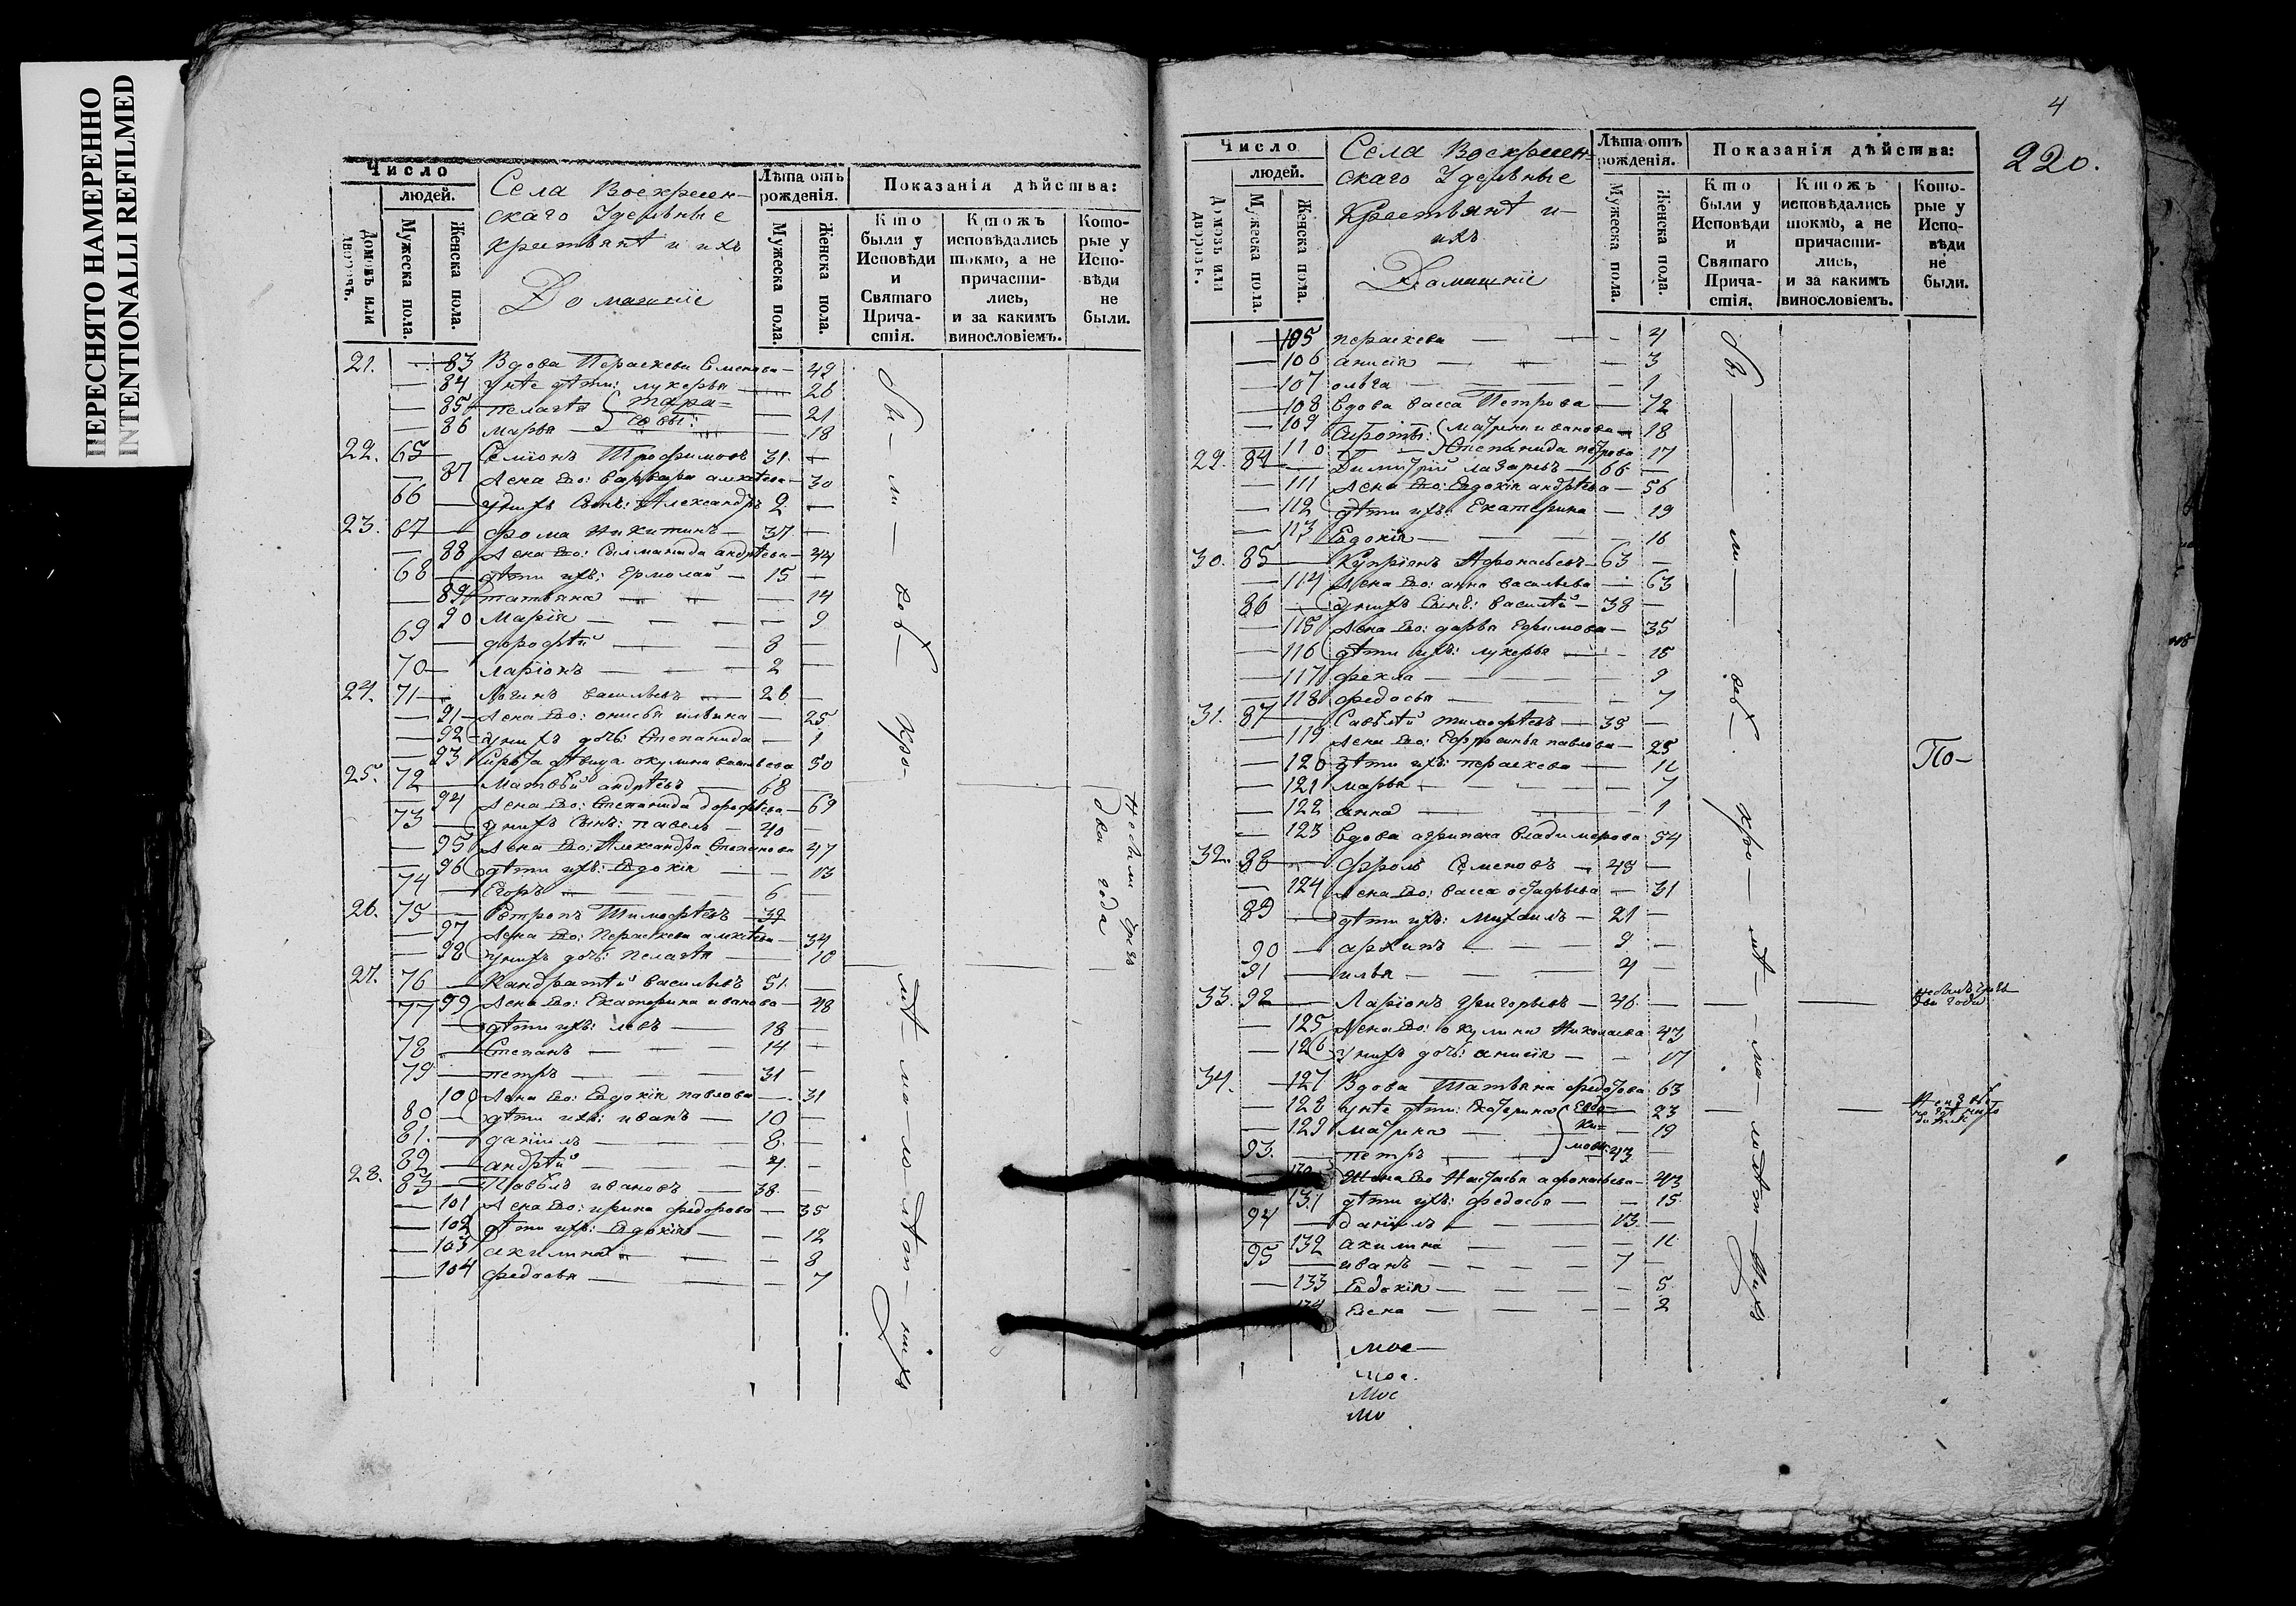 ПЕРЕСНЯТО НАМЕРЕННО
INTENTIONALLI REFILMED
Число
людей.
Домовъ или дворовъ.
Мужеска пола.
Женска пола.
Села Воскресен-
скаго Удельные
крестьянѣ и ихъ
Домашніе
Лѣта отъ рожденія.
Мужеска пола.
Женска пола.
Показанія дѣйства:
Кто были у Исповѣди и Святаго Прича-стія.
Ктожъ исповѣдались токмо, а не причасти-лись, и за какимъ винословіемъ.
Кото-рые у Испо-вѣди не были.
21. — 83 Вдова Параскева Семенова — 49
— 84 у нее дѣти: лукерья — 26
— 85 пелагѣя Тара= — 21
— 86 марья совы: — 18
22. 65 — Семіонъ Трофимовъ 31 —
— 87 Жена Его: варвара алкѣева — 30
66 — у нихъ Сынъ: Александръ 2 —
23. 67 — фома Никитинъ — 37 —
— 88 Жена Его: андрѣева — 44
68 — дѣти ихъ: Ермолай — 15 —
— 89 татьяна — 14
90 Марія — 9
69 — дорофѣй — 8 —
70 — ларіонъ — 2 —
24. 71 — васильевъ — 26 —
— 91 Жена Его: онисья ильина — 25
— 92 у нихъ дочь: Степанида — 1
— 93 дѣвица окулина васильева 50
25. 72 — Матвѣй андрѣевъ — 68 —
— 94 Жена Его: Степанида дорофѣева — 69
73 — у нихъ Сынъ: павелъ — 40 —
— 95 Жена Его: Александра Степанова 47
— 96 дѣти ихъ: Евдокія — 13
74 — Егоръ — 6
26. 75 — Тимофѣевъ — 39
— 97 Жена Его: Параскева алкѣева — 34
— 98 у нихъ дочь: пелагѣя — 10
27. 76 — Кандратій васильевъ 51. —
— 99 Жена Его: Екатерина иванова — 48
77 — дѣти ихъ: левъ — 18 —
78 — Степанъ — 14 —
79 — петръ — 31 —
100 Жена Его: Евдокія павлова — 31
80 — дѣти ихъ: иванъ — 10 —
81. — даніилъ — 8. —
82 — андрѣй — 4. —
28. 83 — Павелъ ивановъ — 38. —
— 101 Жена Его: ирина федорова — 35
— 102 дѣти ихъ: Евдокія — 12
— 103 акилина — 8
— 104 федосья — 7
бы — ли — всѣ — кро-
мѣ — ма — ло — лѣт — нихъ
небыли чрезъ
два года
4
220.
Число
людей.
Домовъ или дворовъ.
Мужеска пола.
Женска пола.
Села Воскресен-
скаго Удельные
Крестьянѣ и
ихъ
Домашніе
Лѣта отъ рожденія.
Мужеска пола.
Женска пола.
Показанія дѣйства:
Кто были у Исповѣди и Святаго Прича-стія.
Ктожъ исповѣдались токмо, а не причасти-лись, и за какимъ винословіемъ.
Кото-рые у Испо-вѣди не были.
— 105 параскева — 4
— 106 анисія — 3
— 107 ольга — 1
— 108 вдова васса Петрова — 72
— 109 Сироты: матрена иванова — 18
— 110 Степанида петрова 17
29. 84 — Димитрій лазаревъ — 66 —
— 111 Жена Его: Евдокія андрѣева — 56
— 112 дѣти ихъ: Екатерина — 19
— 113 Евдокія — 16
30. 85 — Купріянъ Афонасьевъ — 63 —
— 114 Жена Его: анна васильева — 63
86 — у нихъ Сынъ: василій — 38 —
— 115 Жена Его: дарья Ефимова — 35
— 116 дѣти ихъ: лукерья — 15
— 117 фекла — 9
— 118 федосья — 7
31. 87 — Савѣлій тимофѣевъ — 35 —
— 119 Жена Его: Ефросинья павлова — 25
— 120 дѣти ихъ: параскева — 11
— 121 марья — 7
— 122 анна — 1
— 123 вдова агрипена владимерова 54
32. 88 — Фролъ Семеновъ — 43 —
— 124 Жена Его: васса остафьева — 31
89 — дѣти ихъ: Михаилъ — 21 —
90 — архипъ — 9 —
91 — илья — 4 —
33. 92 — Ларіонъ григорьевъ — 46 —
— 125 Жена Его: окулина Николаева 43
— 126 у нихъ дочь: анисія — 17
34. — 127 Вдова Татьяна федотова 63
— 128 у нее дѣти: Екатерина Евдо= 23
— 129 матрена ки= 19
93. — петръ мовы: 43 —
— 130 Жена Его Настасья афонасьева — 43
— 131 дѣти ихъ: федосья — 15
94 — даніилъ — 13 —
— 132 акилина — 11
95 — иванъ — 7 —
— 133 Евдокія — 5
134 Елена — 2
мое
мое.
Мое
Мо
бы — ли — всѣ. кро — мѣ — ма — лолѣт — нихъ
По-
небылъ чрезъ
два года